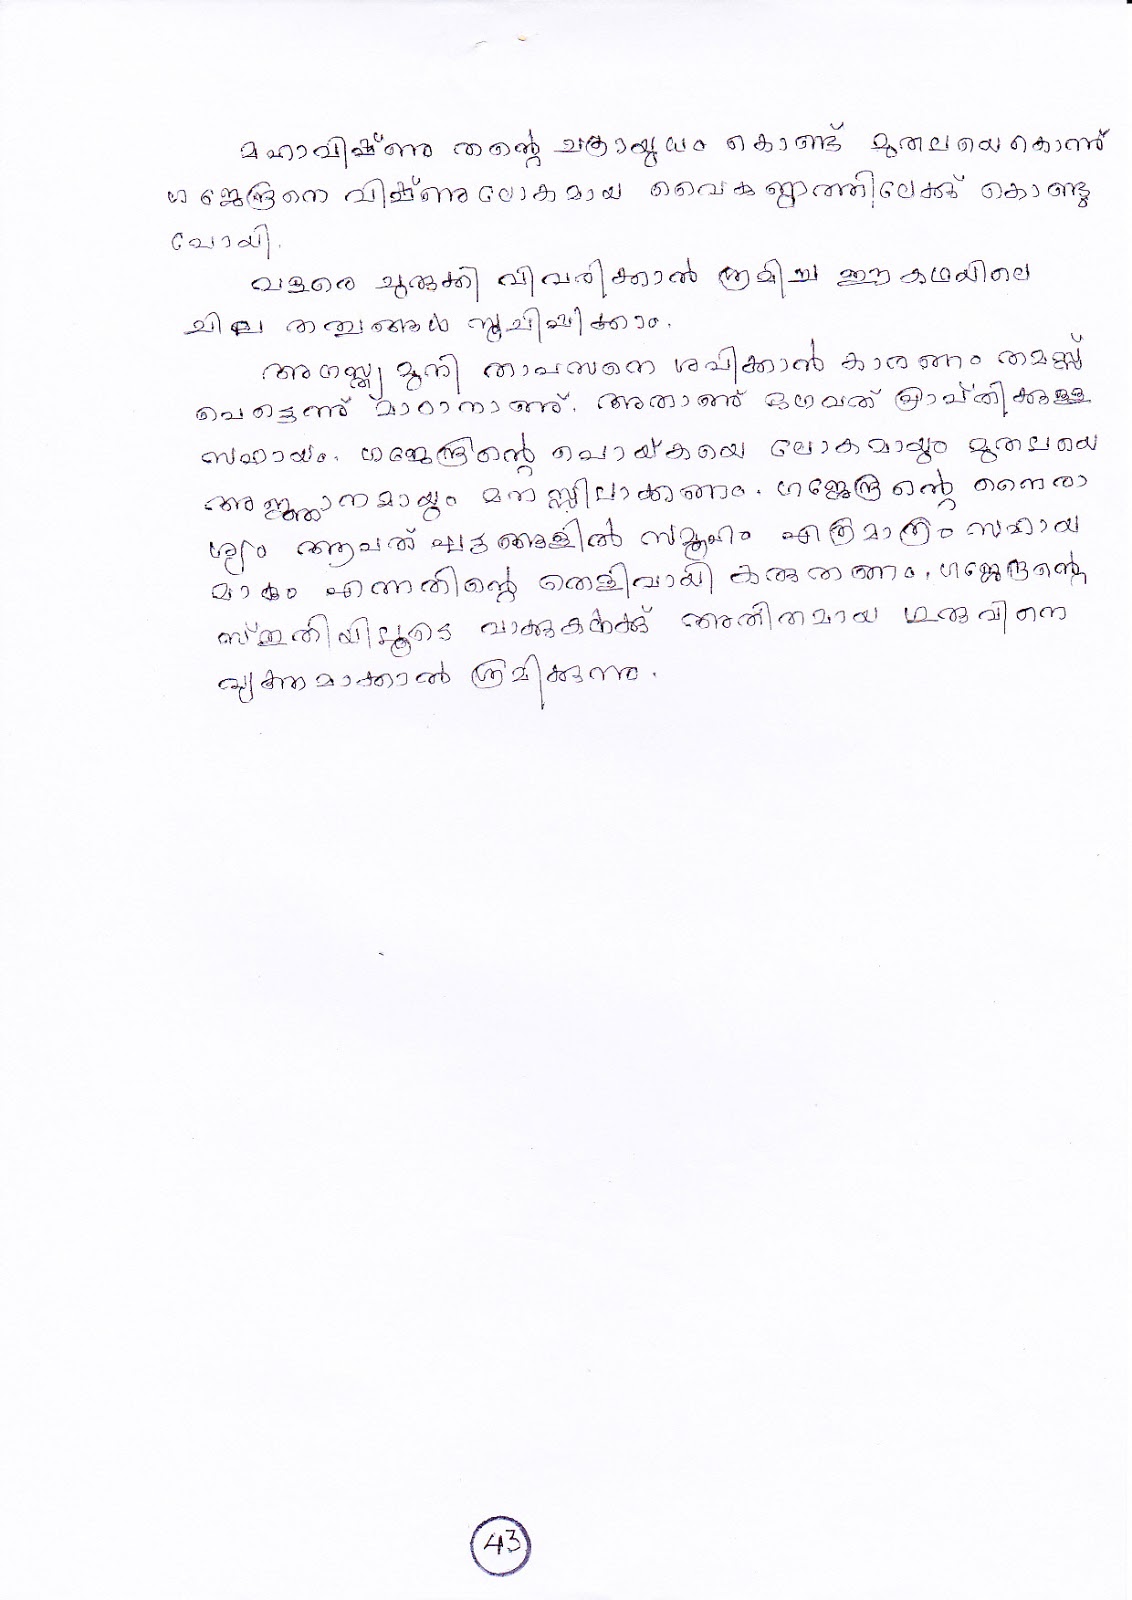 മഹാവിഷ്ണു തന്റെ ചക്രായുധം കൊണ്ട് മുതലയെകൊന്ന്
ഗജേന്ദ്രനെ വിഷ്ണുലോകമായ വൈകുണ്ഠത്തിലേക്ക് കൊണ്ടു
പോയി.
വളരെ ചുരുക്കി വിവരിക്കാൻ ശ്രമിച്ച ഈ കഥയിലെ
ചില തത്വങ്ങൾ സൂചിപ്പിക്കാം.
അഗസ്ത്യ മുനി താപസനെ ശപിക്കാൻ കാരണം തമസ്സ്
പെട്ടെന്ന് മാറാനാണ്. അതാണ് ഭഗവത് പ്രാപ്തിക്കുള്ള
സഹായം. ഗജേന്ദ്രന്റെ പൊയ്കയെ ലോകമായും മുതലയെ
അജ്ഞാനമായും മനസ്സിലാക്കണം. ഗജേന്ദ്രന്റെ നൈരാ
ശ്യം ആപത് ഘട്ടങ്ങളിൽ സമൂഹം എത്രമാത്രം സഹായ
മാകും എന്നതിന്റെ തെളിവായി കരുതണം. ഗജേന്ദ്രന്റെ
സ്തുതിയിലൂടെ വാക്കുകൾക്ക് അതീതമായ ഗുരുവിനെ
വ്യക്തമാക്കാൽ ശ്രമിക്കുന്നു.
43